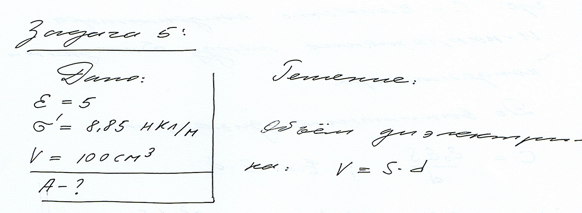 Задача 5:
Дано:
ε = 5
σ' = 8,85 нкл/м
V = 100 см³
A - ?
Решение:
Объём диэлектри-
ка: V = S·d